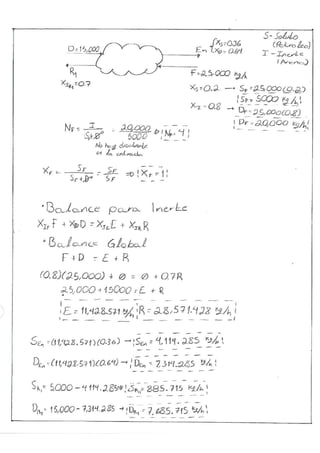 S- Soluto
(Petroleo)
I - Inerte
(Arena)
D=15,000
En {Xs=0.36
XD=0.64
R1
XIR1=0.7
F=25.000 kg/h
Xs=0.2 → SF=25,000(0.2)
SF= 5000 kg/h
XI=0.8 → DF=25,000(0.8)
DF=20,000 kg/h
NF= I/S+D° = 20,000/5000 ⇒ NF=4
No hay disolvente
en la entrada
XF= SF/SF+D° = SF/SF ⇒ XF=1
•Balance para Inerte
XIF F + XID D = XIE E + XIR R
•Balance Global
F + D = E + R
(0.8)(25,000) + 0 = 0 + 0.7R
25,000 + 15000 = E + R
E= 11,428.571 kg/h R= 28,571.428 kg/h
SEn =(11,428.571)(0.36) → SEn= 4,114.285 kg/h
DEn=(11,428.571)(0.64) → DEn= 7,314.285 kg/h
SR1= 5000 - 4114.285 SR1= 885.715 kg/h
DR1= 15,000 - 7,314.285 → DR1= 7,685.715 kg/h